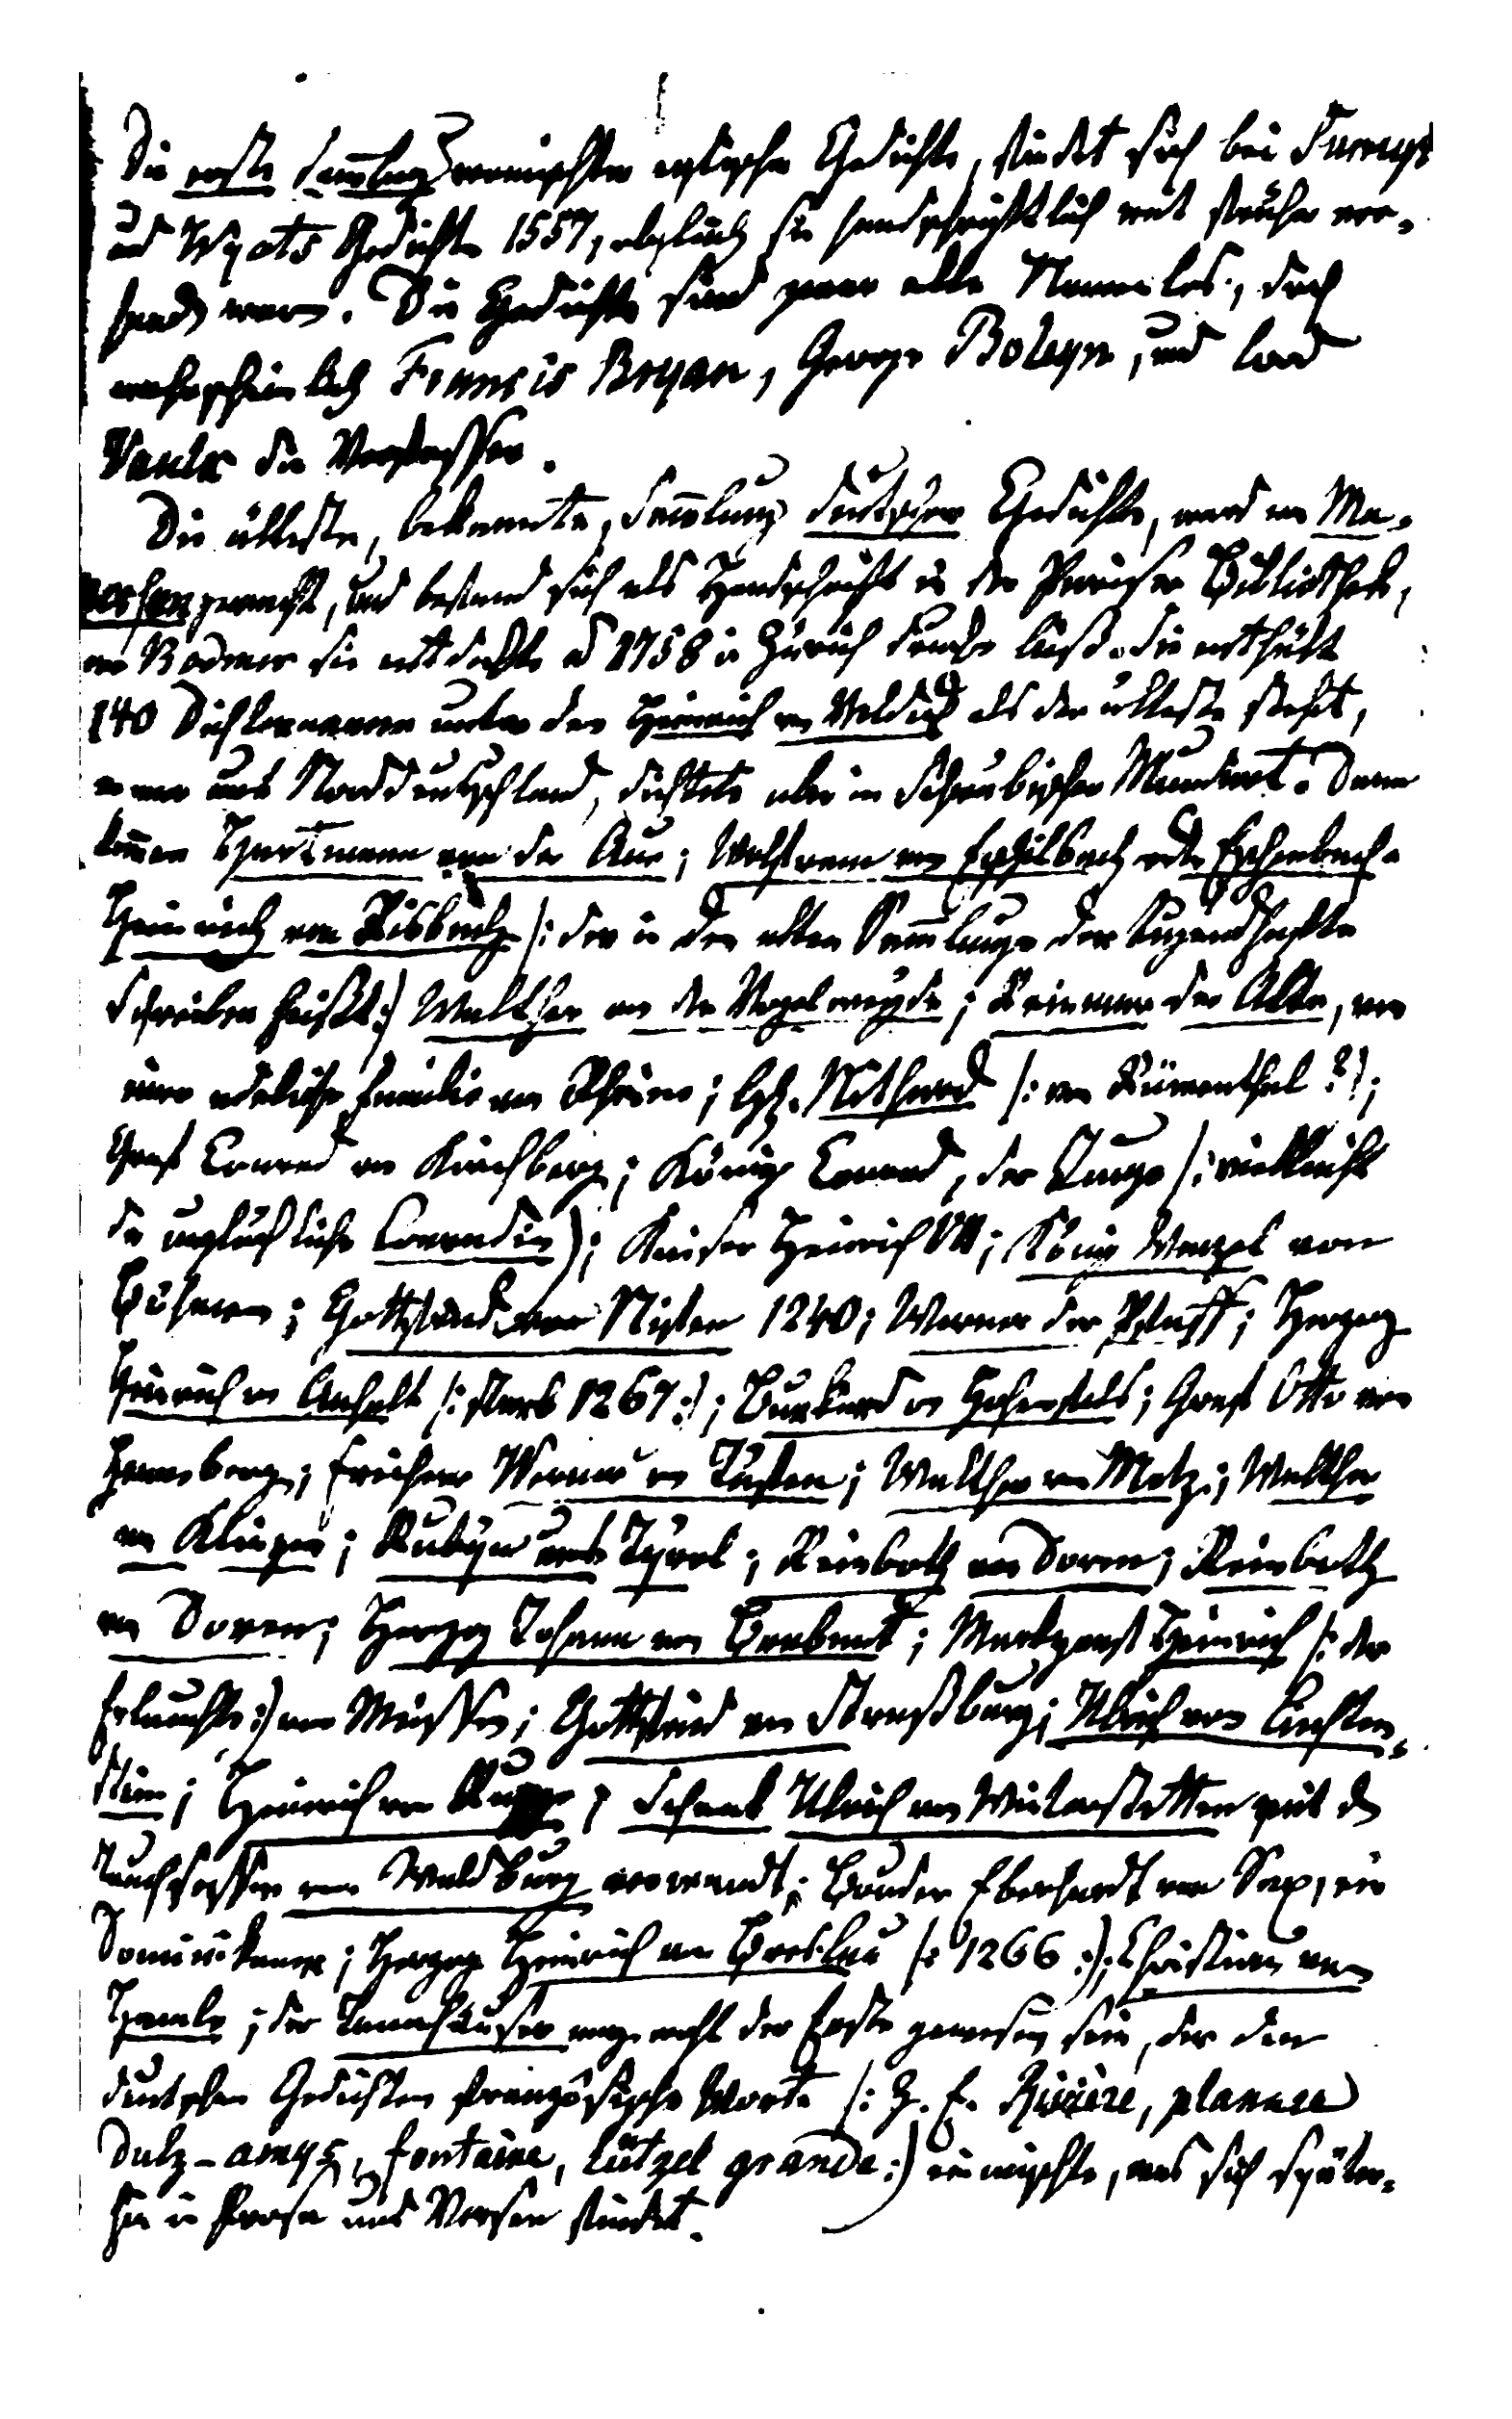 Die erste Sam̅lung vermischter englischer Gedichte, findet sich bei Surreys
und Wyats Gedichte 1557, obgleich sie handschriftlich weit früher vor-
handen waren. Die Gedichte sind zwar alle Namenlos, doch
wahrscheinlich Francis Bryan, George Boleyn, und Lord
Vaulx die Verfasser.
Die älteste, bekannte, Sam̅lung deutscher Gedichte, ward von Ma-
nessen gemacht, und befand sich als Handschrift in der Pariser Bibliothek,
wo Bodmer sie entdeckte und 1758 in Zürich drucken ließ. Sie enthält
140 Dichternamen unter den Heinrich von Veldich als der älteste steht,
er war aus Norddeutschland, dichtete aber in Schwäbischer Mundart. Dann
kom̅en Hartmann von der Aue; Wolfram von Eschilbach oder Eschenbach.
Heinrich von Risbach /: der in den alten Sam̅lungen der Tugendhafte
Schreiber heißt :/ Walther von der Vogelweyde; Reinmar der Alte, von
einer adeliche Familie am Rheine; Nithard /: von Rüwenthal ? :/;
Graf Conrad von Kirchberg; König Conrad, der Junge /: vielleicht
der unglückliche Conradin); Kaiser Heinrich VII; König Wenzel von
Böhmen; Gottfried von Nifen 1240; Werner der Pfaff; Herzog
Heinrich von Anhalt /: starb 1267 :/; Burkard von Hohenfels; Graf Otto von
Henneberg; Freiherr Werner von Tüfen; Walther von Metz; Walther
von Klingen; Rubyn aus Tyrol; Reinboth von Doren; Reinboth
von Doren; Herzog Johann von Brabant; Markgraf Heinrich /: der
Erlauchte :/ von Meissen; Gottfried von Straßburg; Ulrich von Lichten-
stein; Heinrich von Rugge; Schenk Ulrich von Winterstetten mit den
Truchsessen von Waldburg verwandt; Bruder Eberhardt von Sax, ein
Dominikaner; Herzog Heinrich von Breslau /: 1266 :/; Christian von
Hamle; der Tannhäuser mag wohl der Erste gewesen sein, der den
deutschen Gedichten französische Worte /: Z. E. Rivière, planure
dulz-amys, fontaine, lützel grande :/ einmischte, was sich später-
hin in Prosa und Versen findet.